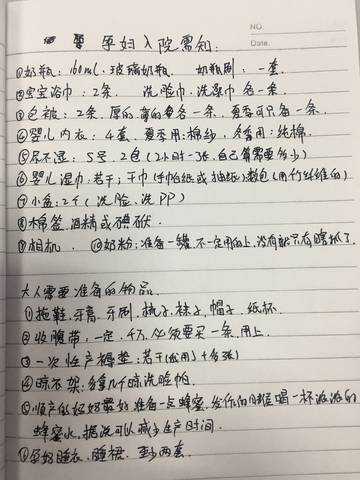 NO.
孕妇入院需知:
Date.
①奶瓶:160ml.玻璃奶瓶. 奶瓶刷:一套.
②宝宝浴巾:2条. 洗脸巾、洗澡巾各一条.
③包被:2条.厚的.薄的各一条.夏季可只备一条.
④婴儿内衣:4套.夏季用:棉纱.冬季用:纯棉.
⑤尿不湿:S号.2包(2小时一张,自己算需要多少)
⑥婴儿湿巾:若干;干巾(手帕纸或抽纸)数包(用竹纤维的)
⑦小盆:2个(洗脸、洗PP)
⑧棉签.酒精或碘伏.
⑨相机. ⑩奶粉:准备一罐.不一定用的上,没有就只有瞎抓了.
大人需要准备的物品.
①拖鞋.牙膏.牙刷.梳子.袜子.帽子.纸杯.
②收腹带,一定,千万,必须要买一条.用上.
③一次性产褥垫:若干(成用)+多张)
④晾衣架.多拿几个晾洗脸帕.
⑤顺产的妈妈最好准备一点蜂蜜.发作的时候喝一杯浓浓的
蜂蜜水.据说可以减少生产时间.
⑥孕妇睡衣.睡裙.至少两套.